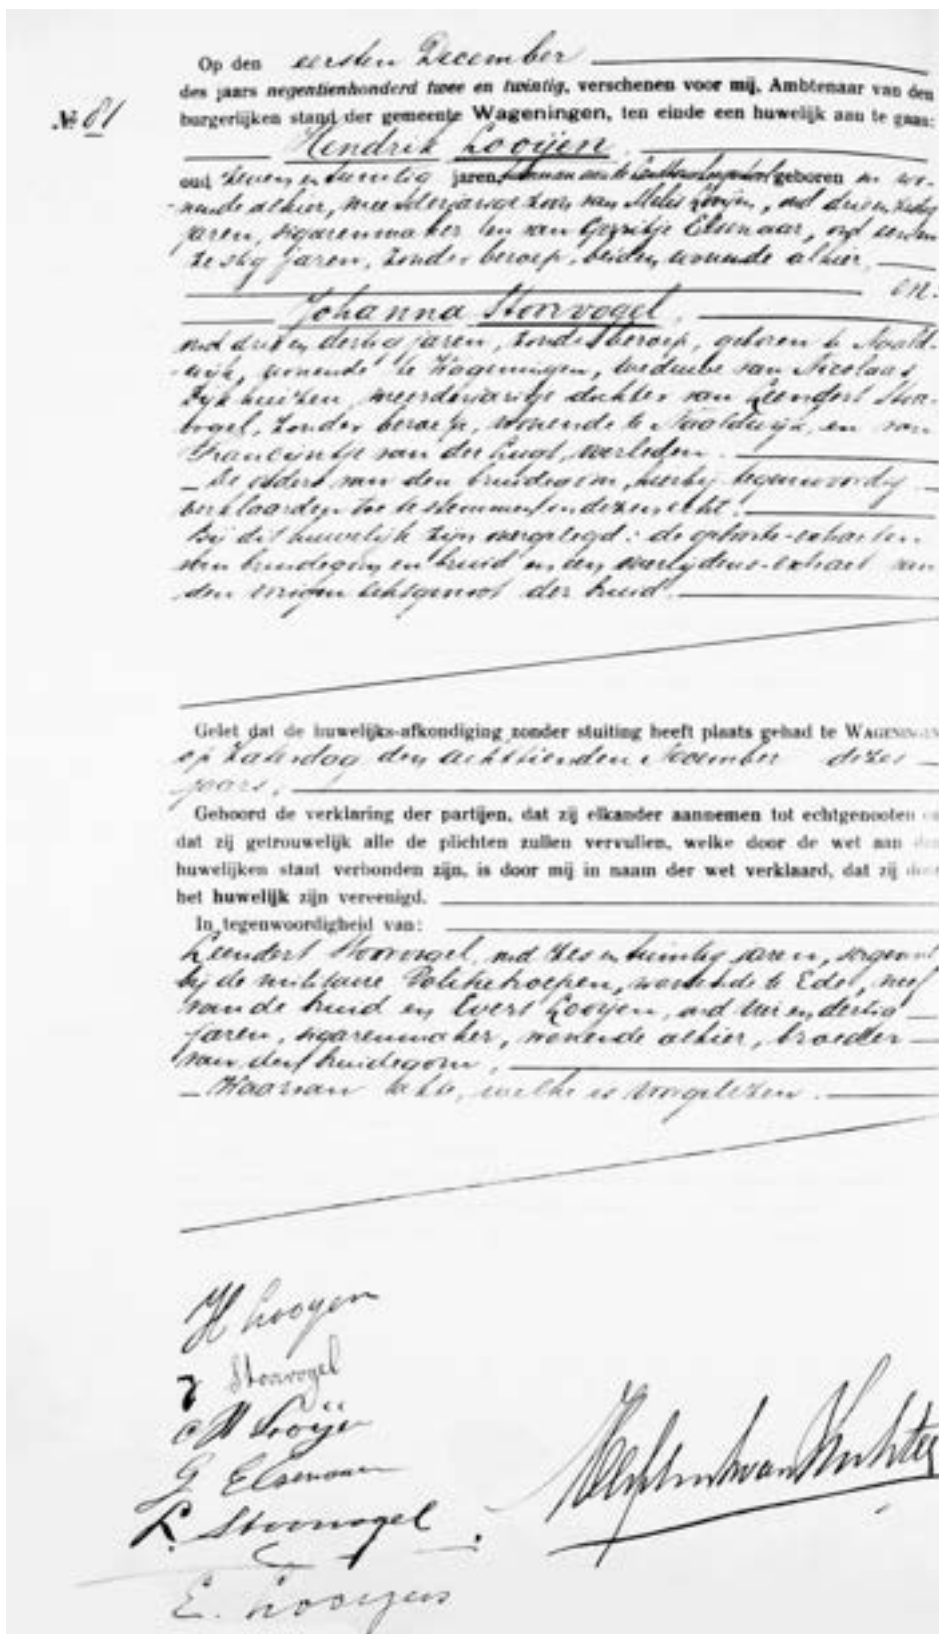 Op den eersten December
des jaars negentienhonderd twee en twintig, verschenen voor mij, Ambtenaar van den
№ 81
burgerlijken stand der gemeente Wageningen, ten einde een huwelijk aan te gaan:
Hendrik Looijen,
oud zeven en twintig jaren, geboren en wo-
nende alhier, meerderjarige zoon van Melis Looijen, oud drie en zestig
jaren, sigarenmaker en van Gerritje Elsenaar, oud een en
zestig jaren, zonder beroep, beiden wonende alhier,
en.
Johanna Stoorvogel,
oud drie en dertig jaren, zonder beroep, geboren te Naald-
wijk, wonende te Wageningen, weduwe van Nicolaas
Dijkhuizen, meerderjarige dochter van Leendert Stoor-
vogel, zonder beroep, wonende te Naaldwijk, en van
Francijntje van der Lugt, overleden.
De ouders van den bruidegom, hierbij tegenwoordig
verklaarden toe te stemmen in deze echt.
Bij dit huwelijk zijn overgelegd: de geboorte-extracten
van bruidegom en bruid en een overlijdens-extract van
den vorigen echtgenoot der bruid.
Gelet dat de huwelijks-afkondiging zonder stuiting heeft plaats gehad te Wageningen
op Zaterdag den achttienden November dezes
jaars.
Gehoord de verklaring der partijen, dat zij elkander aannemen tot echtgenooten
dat zij getrouwelijk alle de plichten zullen vervullen, welke door de wet aan den
huwelijken staat verbonden zijn, is door mij in naam der wet verklaard, dat zij door
het huwelijk zijn vereenigd.
In tegenwoordigheid van:
Leendert Stoorvogel, oud zes en twintig jaren, sergeant
bij de militaire Politietroepen, wonende te Ede, neef
van de bruid en Evert Looijen, oud en dertig
jaren, sigarenmaker, wonende alhier, broeder
van den bruidegom,
Waarvan akte, welke is voorgelezen.
H Looyen
J Stoorvogel
M Looije
G Elsenaar
L. Stoorvogel
E. Looijen